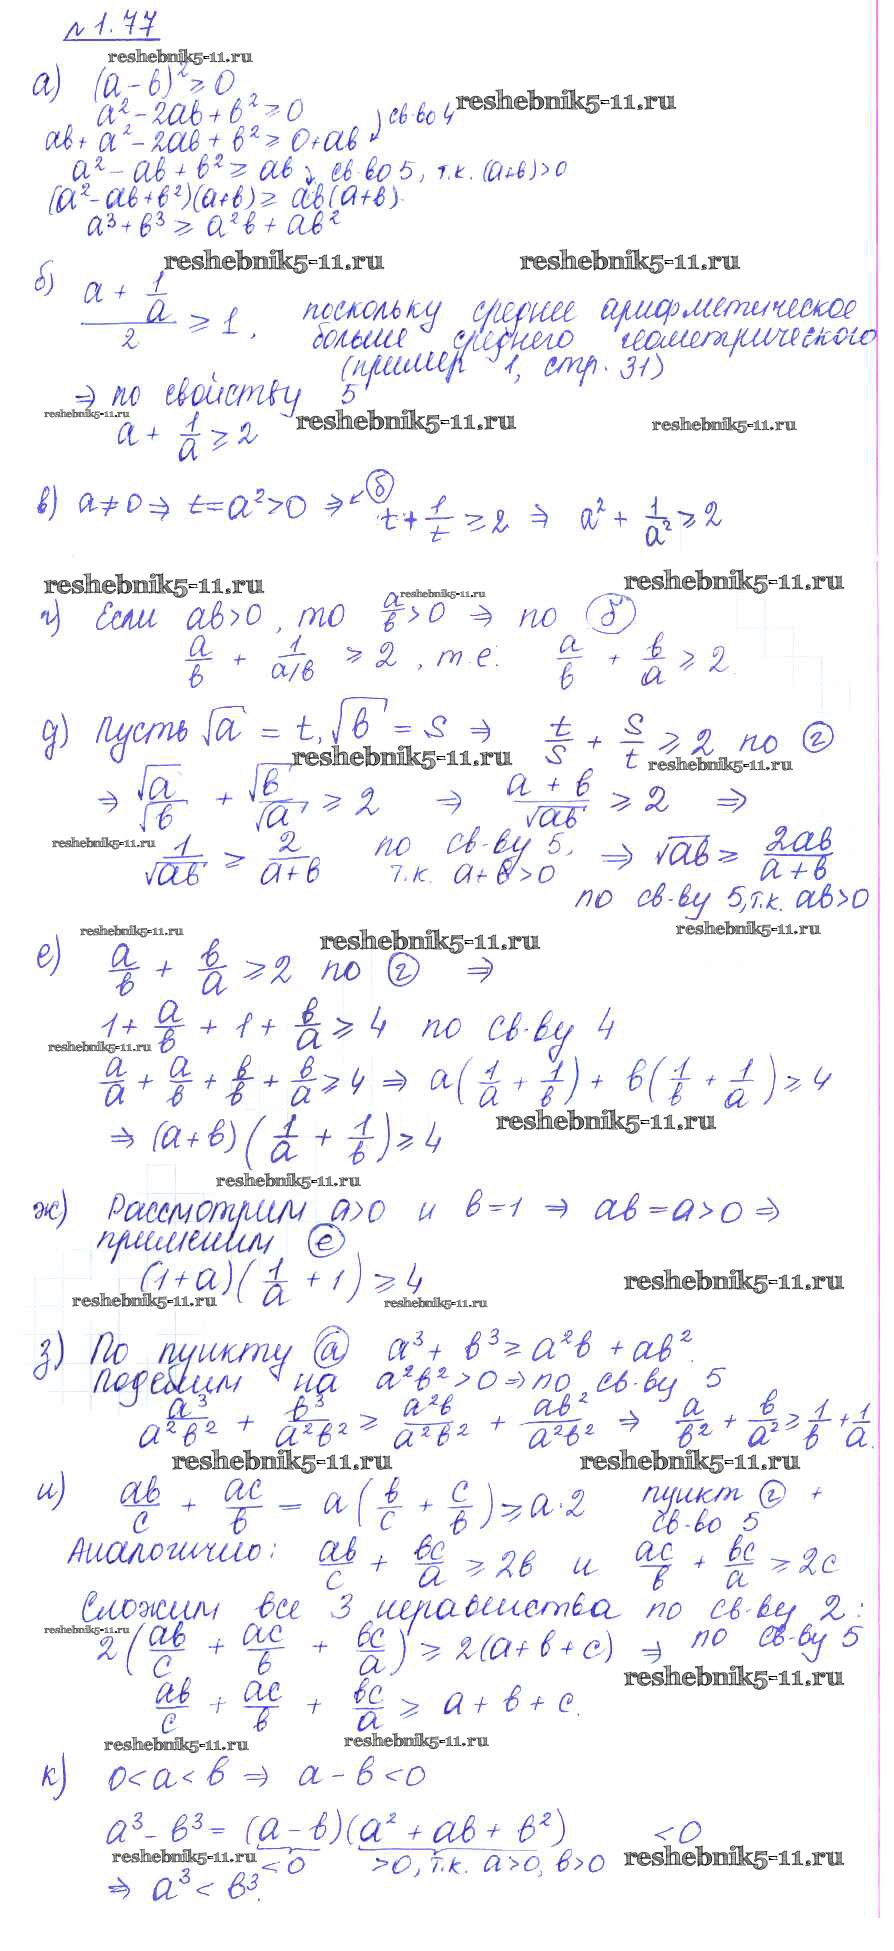 № 1.77
reshebnik5-11.ru
а) (a-b)² ≥ 0
a² - 2ab + b² ≥ 0 св-во 4
reshebnik5-11.ru
ab + a² - 2ab + b² ≥ 0 + ab
a² - ab + b² ≥ ab св-во 5, т.к. (a+b) > 0
(a² - ab + b²)(a+b) ≥ ab(a+b)
a³ + b³ ≥ a²b + ab²
reshebnik5-11.ru reshebnik5-11.ru
б) (a + 1/a)/2 ≥ 1, поскольку среднее арифметическое
больше среднего геометрического
(пример 1, стр. 31)
⇒ по свойству 5
reshebnik5-11.ru reshebnik5-11.ru reshebnik5-11.ru
a + 1/a ≥ 2
в) a ≠ 0 ⇒ t = a² > 0 ⇒ б t + 1/t ≥ 2 ⇒ a² + 1/a² ≥ 2
reshebnik5-11.ru reshebnik5-11.ru reshebnik5-11.ru
г) Если ab > 0, то a/b > 0 ⇒ по б
a/b + 1/(a/b) ≥ 2, т.е. a/b + b/a ≥ 2
д) Пусть √a = t, √b = s ⇒ t/s + s/t ≥ 2 по г
reshebnik5-11.ru reshebnik5-11.ru
⇒ √a/√b + √b/√a ≥ 2 ⇒ (a + b)/√ab ≥ 2 ⇒
reshebnik5-11.ru
1/√ab ≥ 2/(a+b) по св-ву 5, т.к. a+b > 0 ⇒ √ab ≥ 2ab/(a+b)
по св-ву 5, т.к. ab > 0
reshebnik5-11.ru reshebnik5-11.ru reshebnik5-11.ru
е) a/b + b/a ≥ 2 по г ⇒
1 + a/b + 1 + b/a ≥ 4 по св-ву 4
reshebnik5-11.ru
a/a + a/b + b/b + b/a ≥ 4 ⇒ a(1/a + 1/b) + b(1/b + 1/a) ≥ 4
reshebnik5-11.ru
⇒ (a+b)(1/a + 1/b) ≥ 4
reshebnik5-11.ru
ж) Рассмотрим a>0 и b=1 ⇒ ab = a > 0 ⇒
применим е
(1+a)(1/a + 1) ≥ 4
reshebnik5-11.ru
reshebnik5-11.ru reshebnik5-11.ru
з) По пункту а a³ + b³ ≥ a²b + ab².
Поделим на a²b² > 0 ⇒ по св-ву 5
a³/a²b² + b³/a²b² ≥ a²b/a²b² + ab²/a²b² ⇒ a/b² + b/a² ≥ 1/b + 1/a.
reshebnik5-11.ru reshebnik5-11.ru
и) ab/c + ac/b = a(b/c + c/b) ≥ a·2 пункт г +
св-во 5
Аналогично: ab/c + bc/a ≥ 2b и ac/b + bc/a ≥ 2c
Сложим все 3 неравенства по св-ву 2:
reshebnik5-11.ru
2(ab/c + ac/b + bc/a) ≥ 2(a+b+c) ⇒ по св-ву 5
reshebnik5-11.ru
ab/c + ac/b + bc/a ≥ a + b + c.
reshebnik5-11.ru reshebnik5-11.ru
к) 0 < a < b ⇒ a - b < 0
a³ - b³ = (a - b)(a² + ab + b²) < 0
reshebnik5-11.ru reshebnik5-11.ru
<0 >0, т.к. a>0, b>0
⇒ a³ < b³.